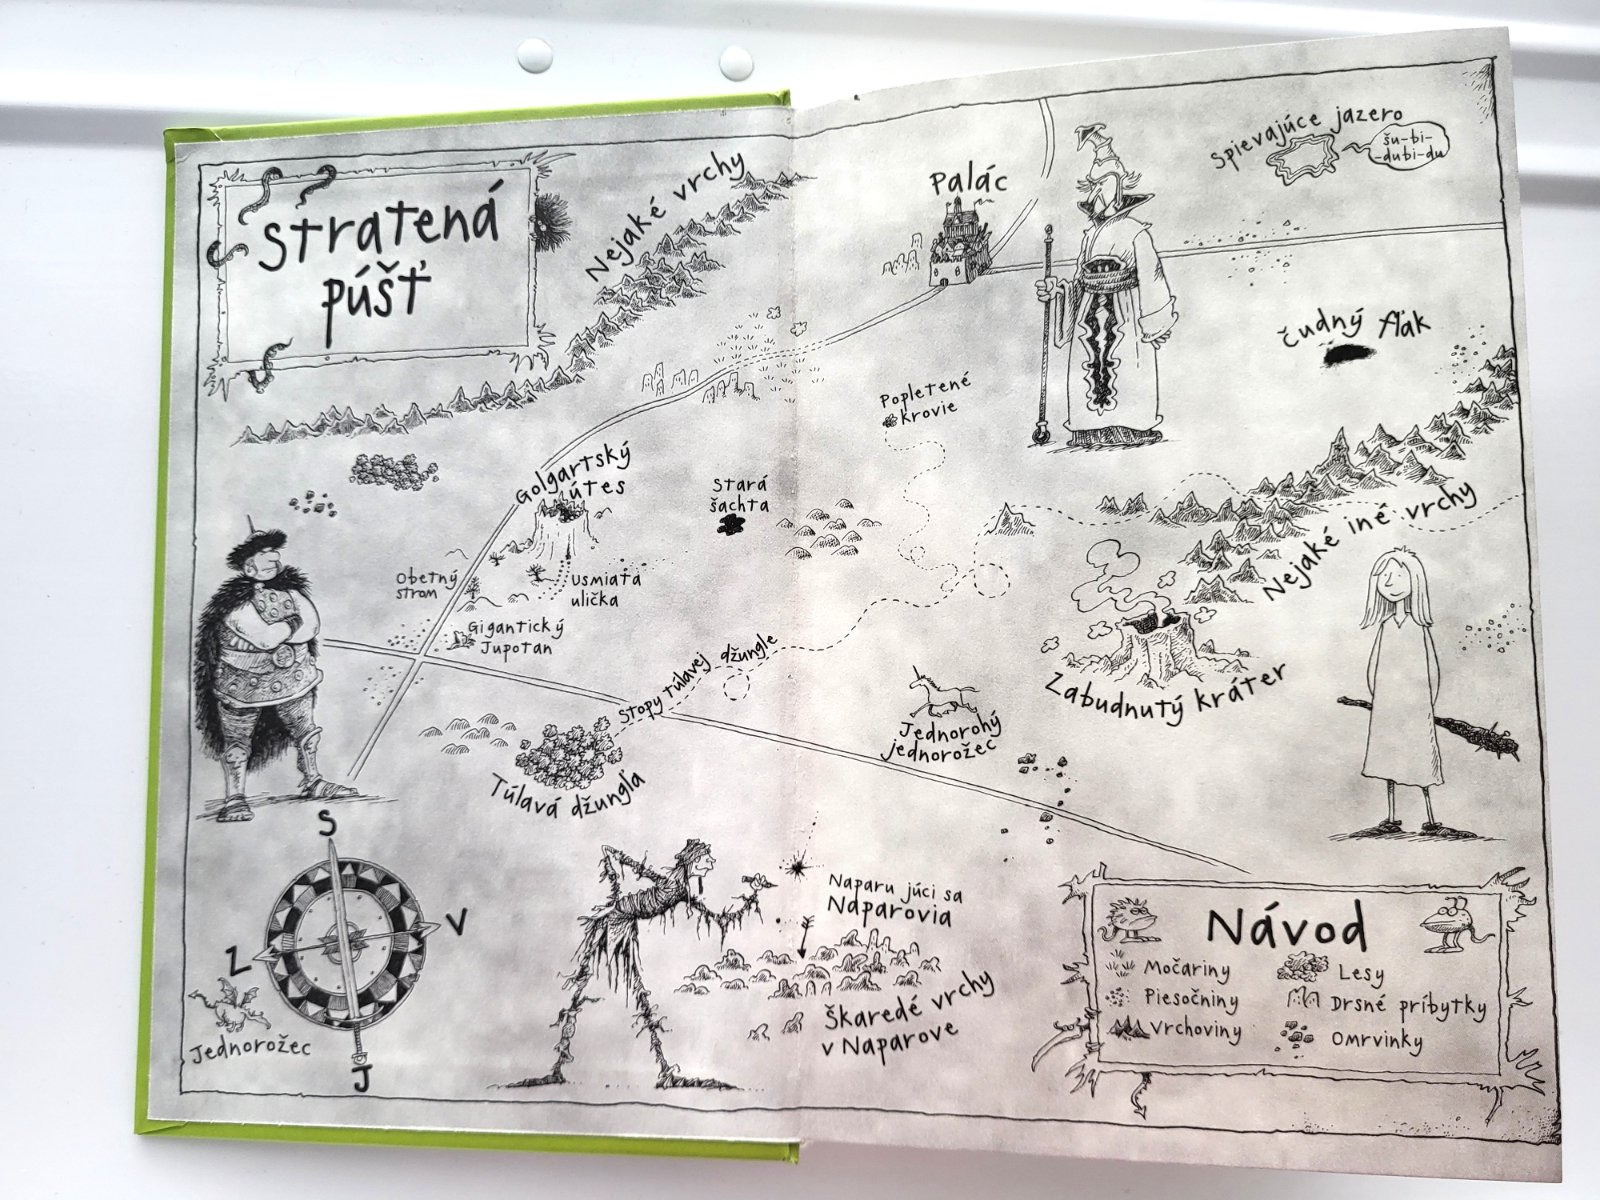 Stratená
púšť
Nejaké vrchy
Palác
Spievajúce jazero
šu-bi-
-dubi-du
čudný fľak
Popletené
krovie
Golgartský
útes
Stará
šachta
Nejaké iné vrchy
Obetný
strom
Usmiata
ulička
Gigantický
Jupotan
Stopy túlavej džungle
Zabudnutý kráter
Jednorohý
jednorožec
Túlavá džungľa
S
V
Z
J
Jednorožec
Naparujúci sa
Naparovia
Škaredé vrchy
v Naparove
Návod
Močariny
Lesy
Piesočniny
Drsné príbytky
Vrchoviny
Omrvinky